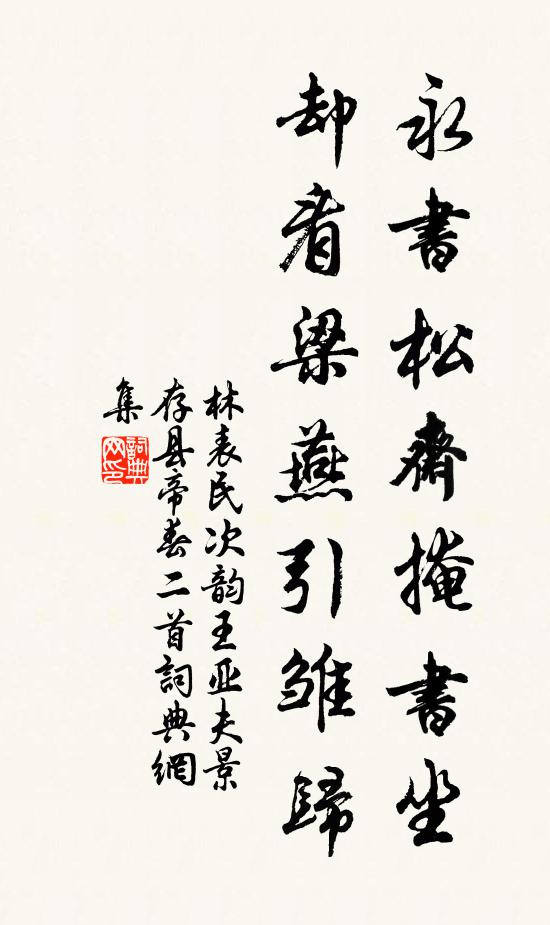 永書松齋掩書坐
却看梁燕引雏歸
林表民次韵王亚夫景
存县帝春二首詞典網
集
詞典網印